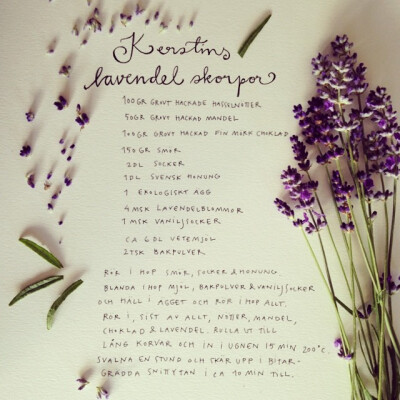 Kerstins
lavendel skorpor
100GR GROVT HACKADE HASSELNÖTTER
50GR GROVT HACKAD MANDEL
100GR GROVT HACKAD FIN MÖRK CHOKLAD
150 GR SMÖR
2DL SOCKER
1DL SVENSK HONUNG
1 EKOLOGISKT ÄGG
4MSK LAVENDELBLOMMOR
1 MSK VANILJSOCKER
CA 6DL VETEMJÖL
1TSK BAKPULVER
RÖR I HOP SMÖR, SOCKER & HONUNG.
BLANDA I HOP MJÖL, BAKPULVER & VANILJSOCKER
OCH HÄLL I ÄGGET OCH RÖR I HOP ALLT.
RÖR I, SIST AV ALLT, NÖTTER, MANDEL,
CHOKLAD & LAVENDEL. RULLA UT TILL
LÅNG KORVAR OCH IN I UGNEN 15 MIN 200°C.
SVALNA EN STUND OCH SKÄR UPP I BITAR-
GRÄDDA SNITTYTAN I CA 10 MIN TILL.